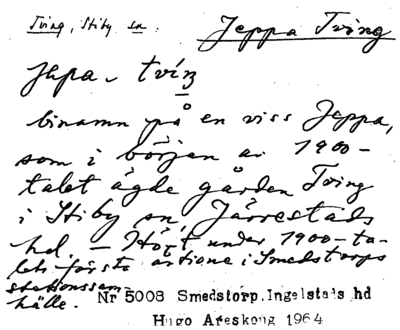 Tving, Stiby sn.
Jeppa Tving
binamn på en viss Jeppa,
som i början av 1900-
talet ägde gården Tving
i Stiby sn, Järrestads
hd. — Hört under 1900-ta-
lets första årtionde i Smedstorps
stationssam-
hälle.
Nr 5008 Smedstorp. Ingelstads hd
Hugo Areskoug 1964